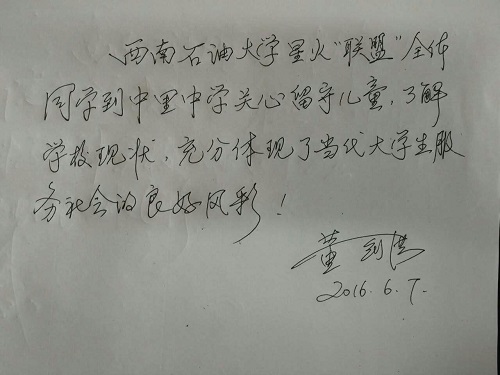 西南石油大学星火“联盟”全体
同学到中里中学关心留守儿童,了解
学校现状,充分体现了当代大学生服
务社会的良好风彩!
董
2016.6.7.